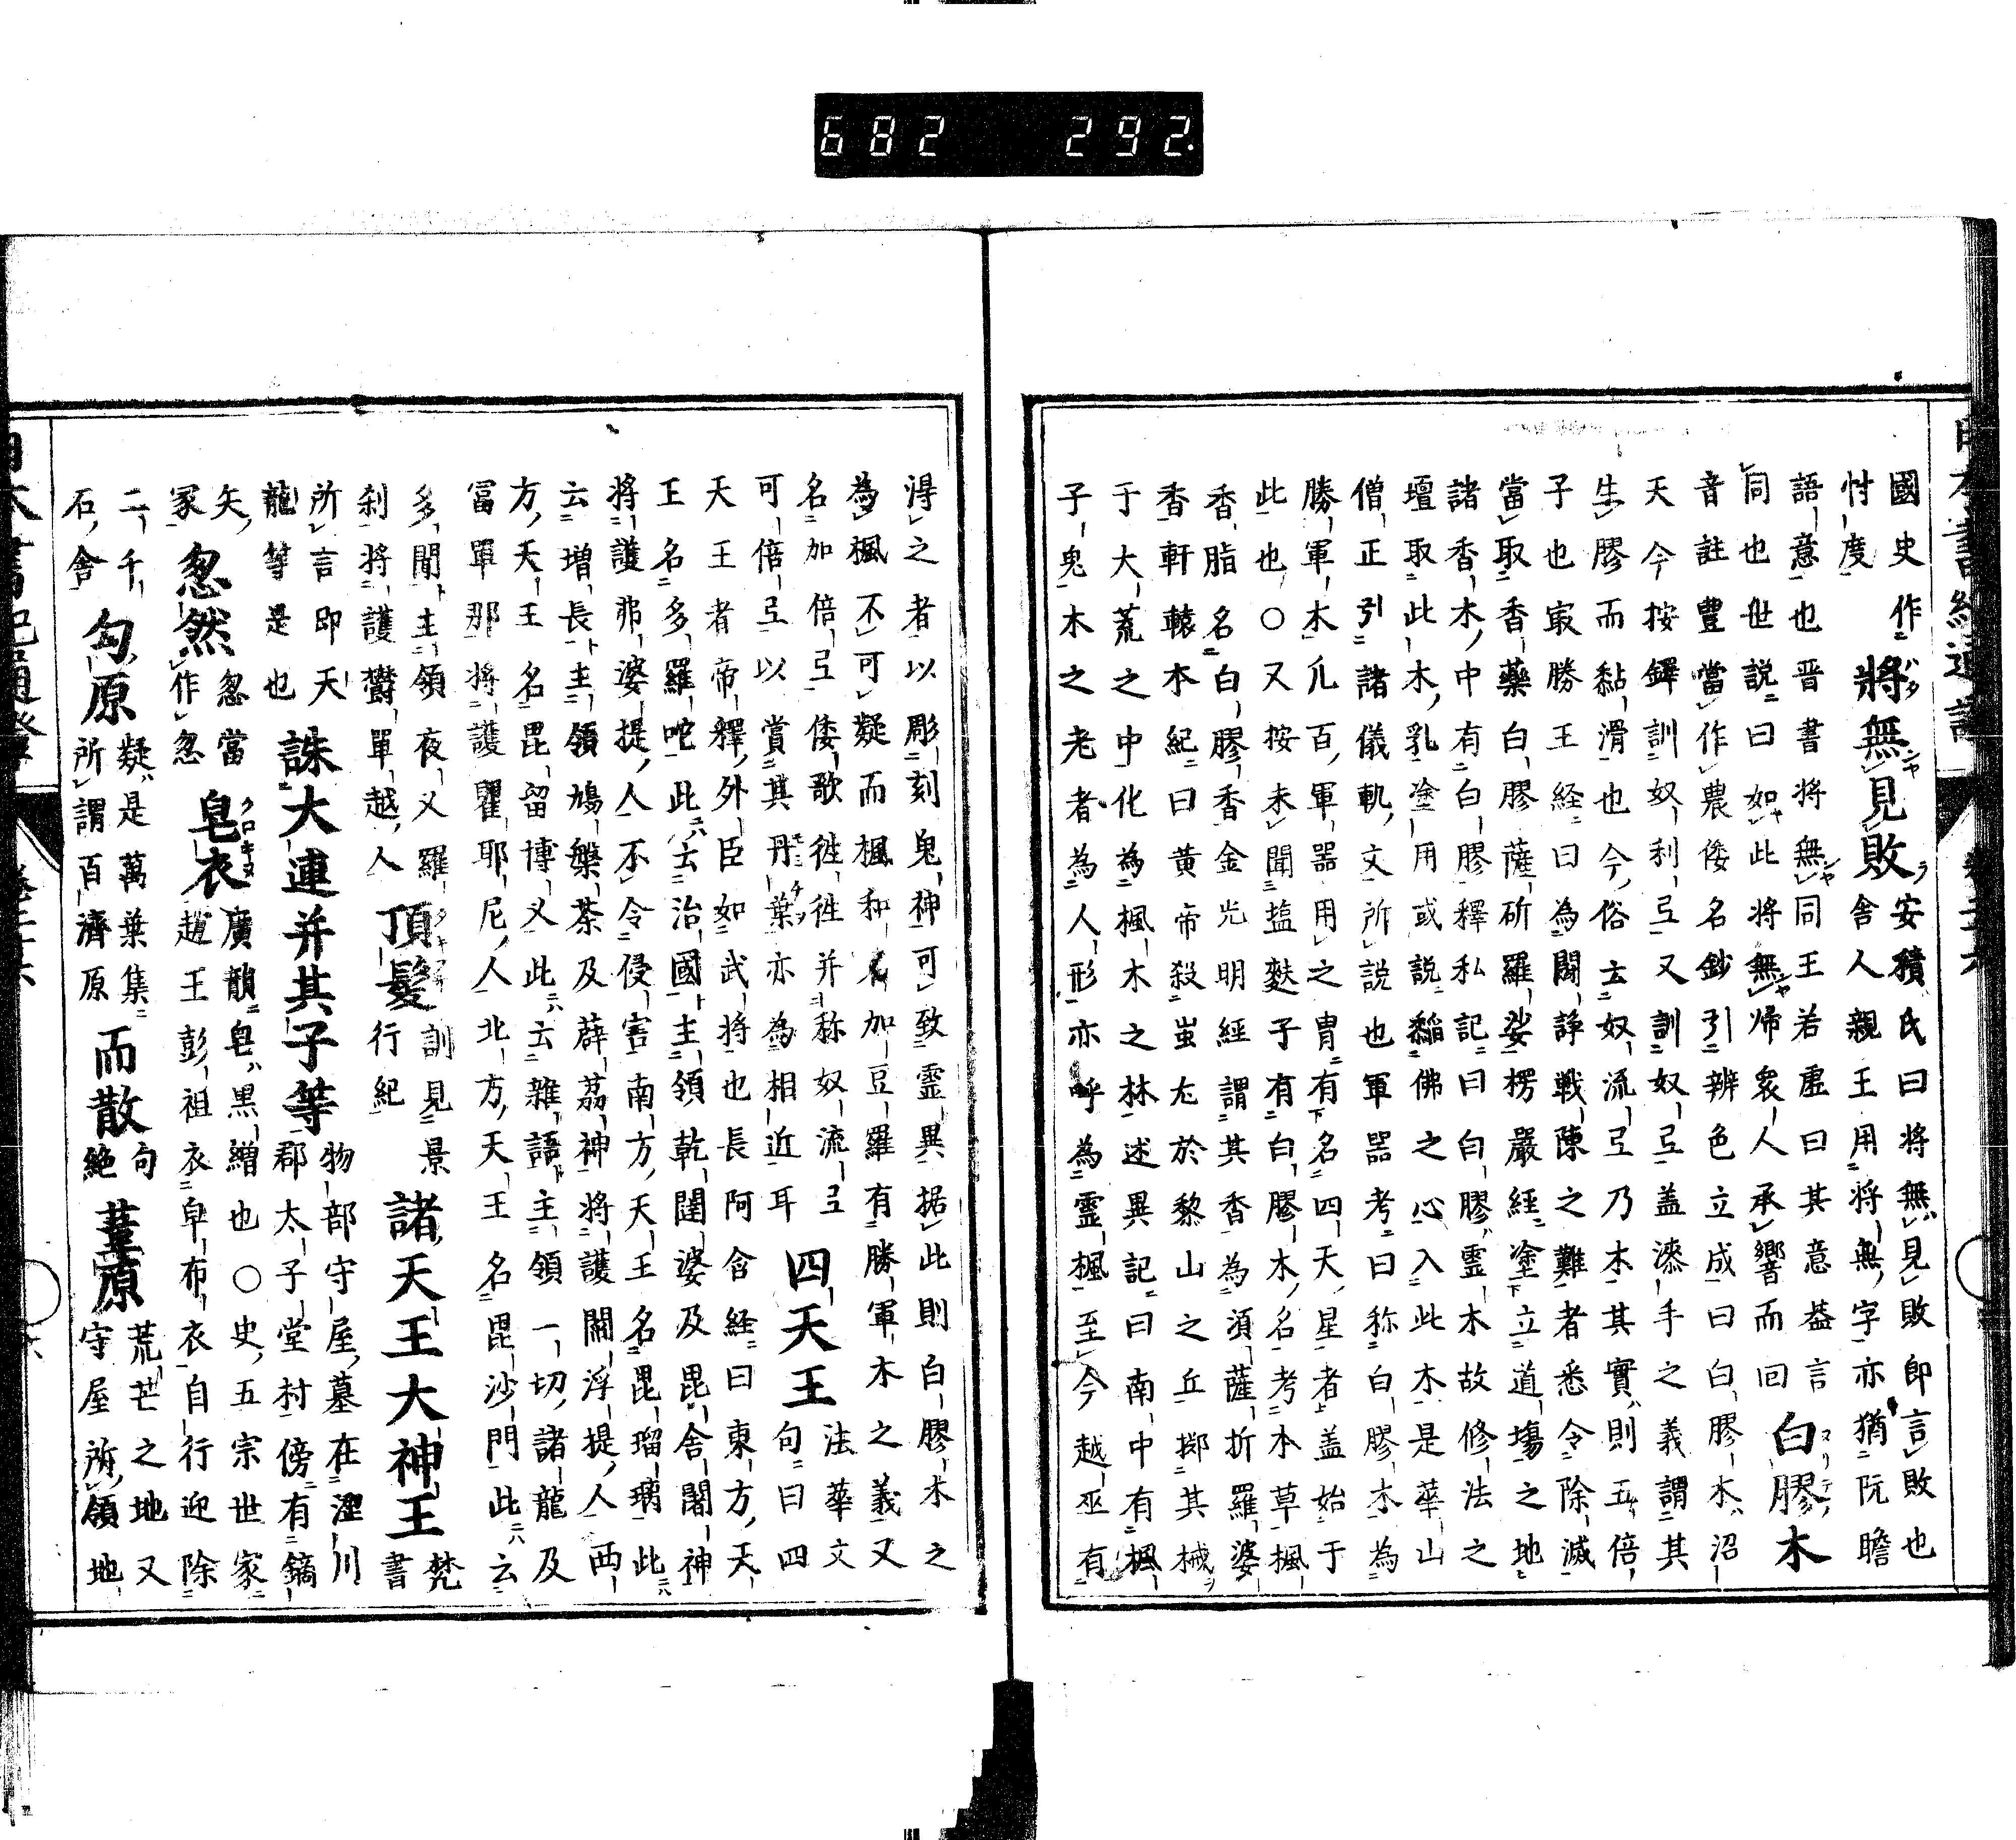 682 292.
國史作 將無見敗 安積氏曰將無見敗即言敗也
忖度 舍人親王用將無字亦猶阮瞻
語意也晋書将無同王若虛曰其意盖言
同也世説曰如此將無帰衆人承響而回 白膠木
音註豊當作農倭名鈔引辨色立成曰白膠木沼
天今按鐸訓奴利弖又訓奴弖盖漆手之義謂其
生膠而黏滑也今俗云奴流弖乃木其實則五倍
子也㝡勝王経曰為鬪諍戦陳之難者悉令除滅
當取香藥白膠薩斫羅娑楞嚴經塗立道場之地
諸香木中有白膠釋私記曰白膠霊木故修法之
壇取此木乳塗用或説䅽佛之心入此木是華山
僧正引諸儀軌文所説也軍器考曰称白膠木為
勝軍木凡百軍器用之冑有名四天星者盖始于
此也○又按未聞塩麩子有白膠木名考本草楓
香脂名白膠香金光明經謂其香為須薩折羅婆
香軒轅本紀曰黄帝殺蚩尤於黎山之丘擲其械
于大荒之中化為楓木之林述異記曰南中有楓
子鬼木之老者為人形亦呼為霊楓至今越巫有
淂之者以彫刻鬼神可致霊異据此則白膠木之
為楓不可疑而楓和名加豆羅有勝軍木之義又
名加倍弖倭歌徃徃并称奴流弖 法華文
可倍弖以賞其丹葉亦為相近耳 四天王 句曰四
天王者帝釋外臣如武將也長阿含経曰東方天
王名多羅咜此云治國主領乾闥婆及毘舍闍神
將護弗婆提人不令侵害南方天王名毘瑠璃此
云増長主領鳩槃荼及薜荔神將護閻浮提人西
方天王名毘留博义此云雜語主領一切諸龍及
冨單那將護瞿耶尼人北方天王名毘沙門此云
多聞主領夜义羅 訓見景
刹將護鬱單越人 頂髮 行紀 諸天王大神王 梵書
所言即天
龍等是也 誅大連并其子等 物部守屋墓在澀川
郡太子堂村傍有鏑
矢 忽然 忽當 皂衣 廣韻皂黒繒也○史五宗世家
冢 作忽 趙王彭祖衣皁布衣自行迎除
二千 疑是萬葉集 句 荒芒之地又
石舎 勾原 所謂百濟原 而散 絶 葦原 守屋所領地